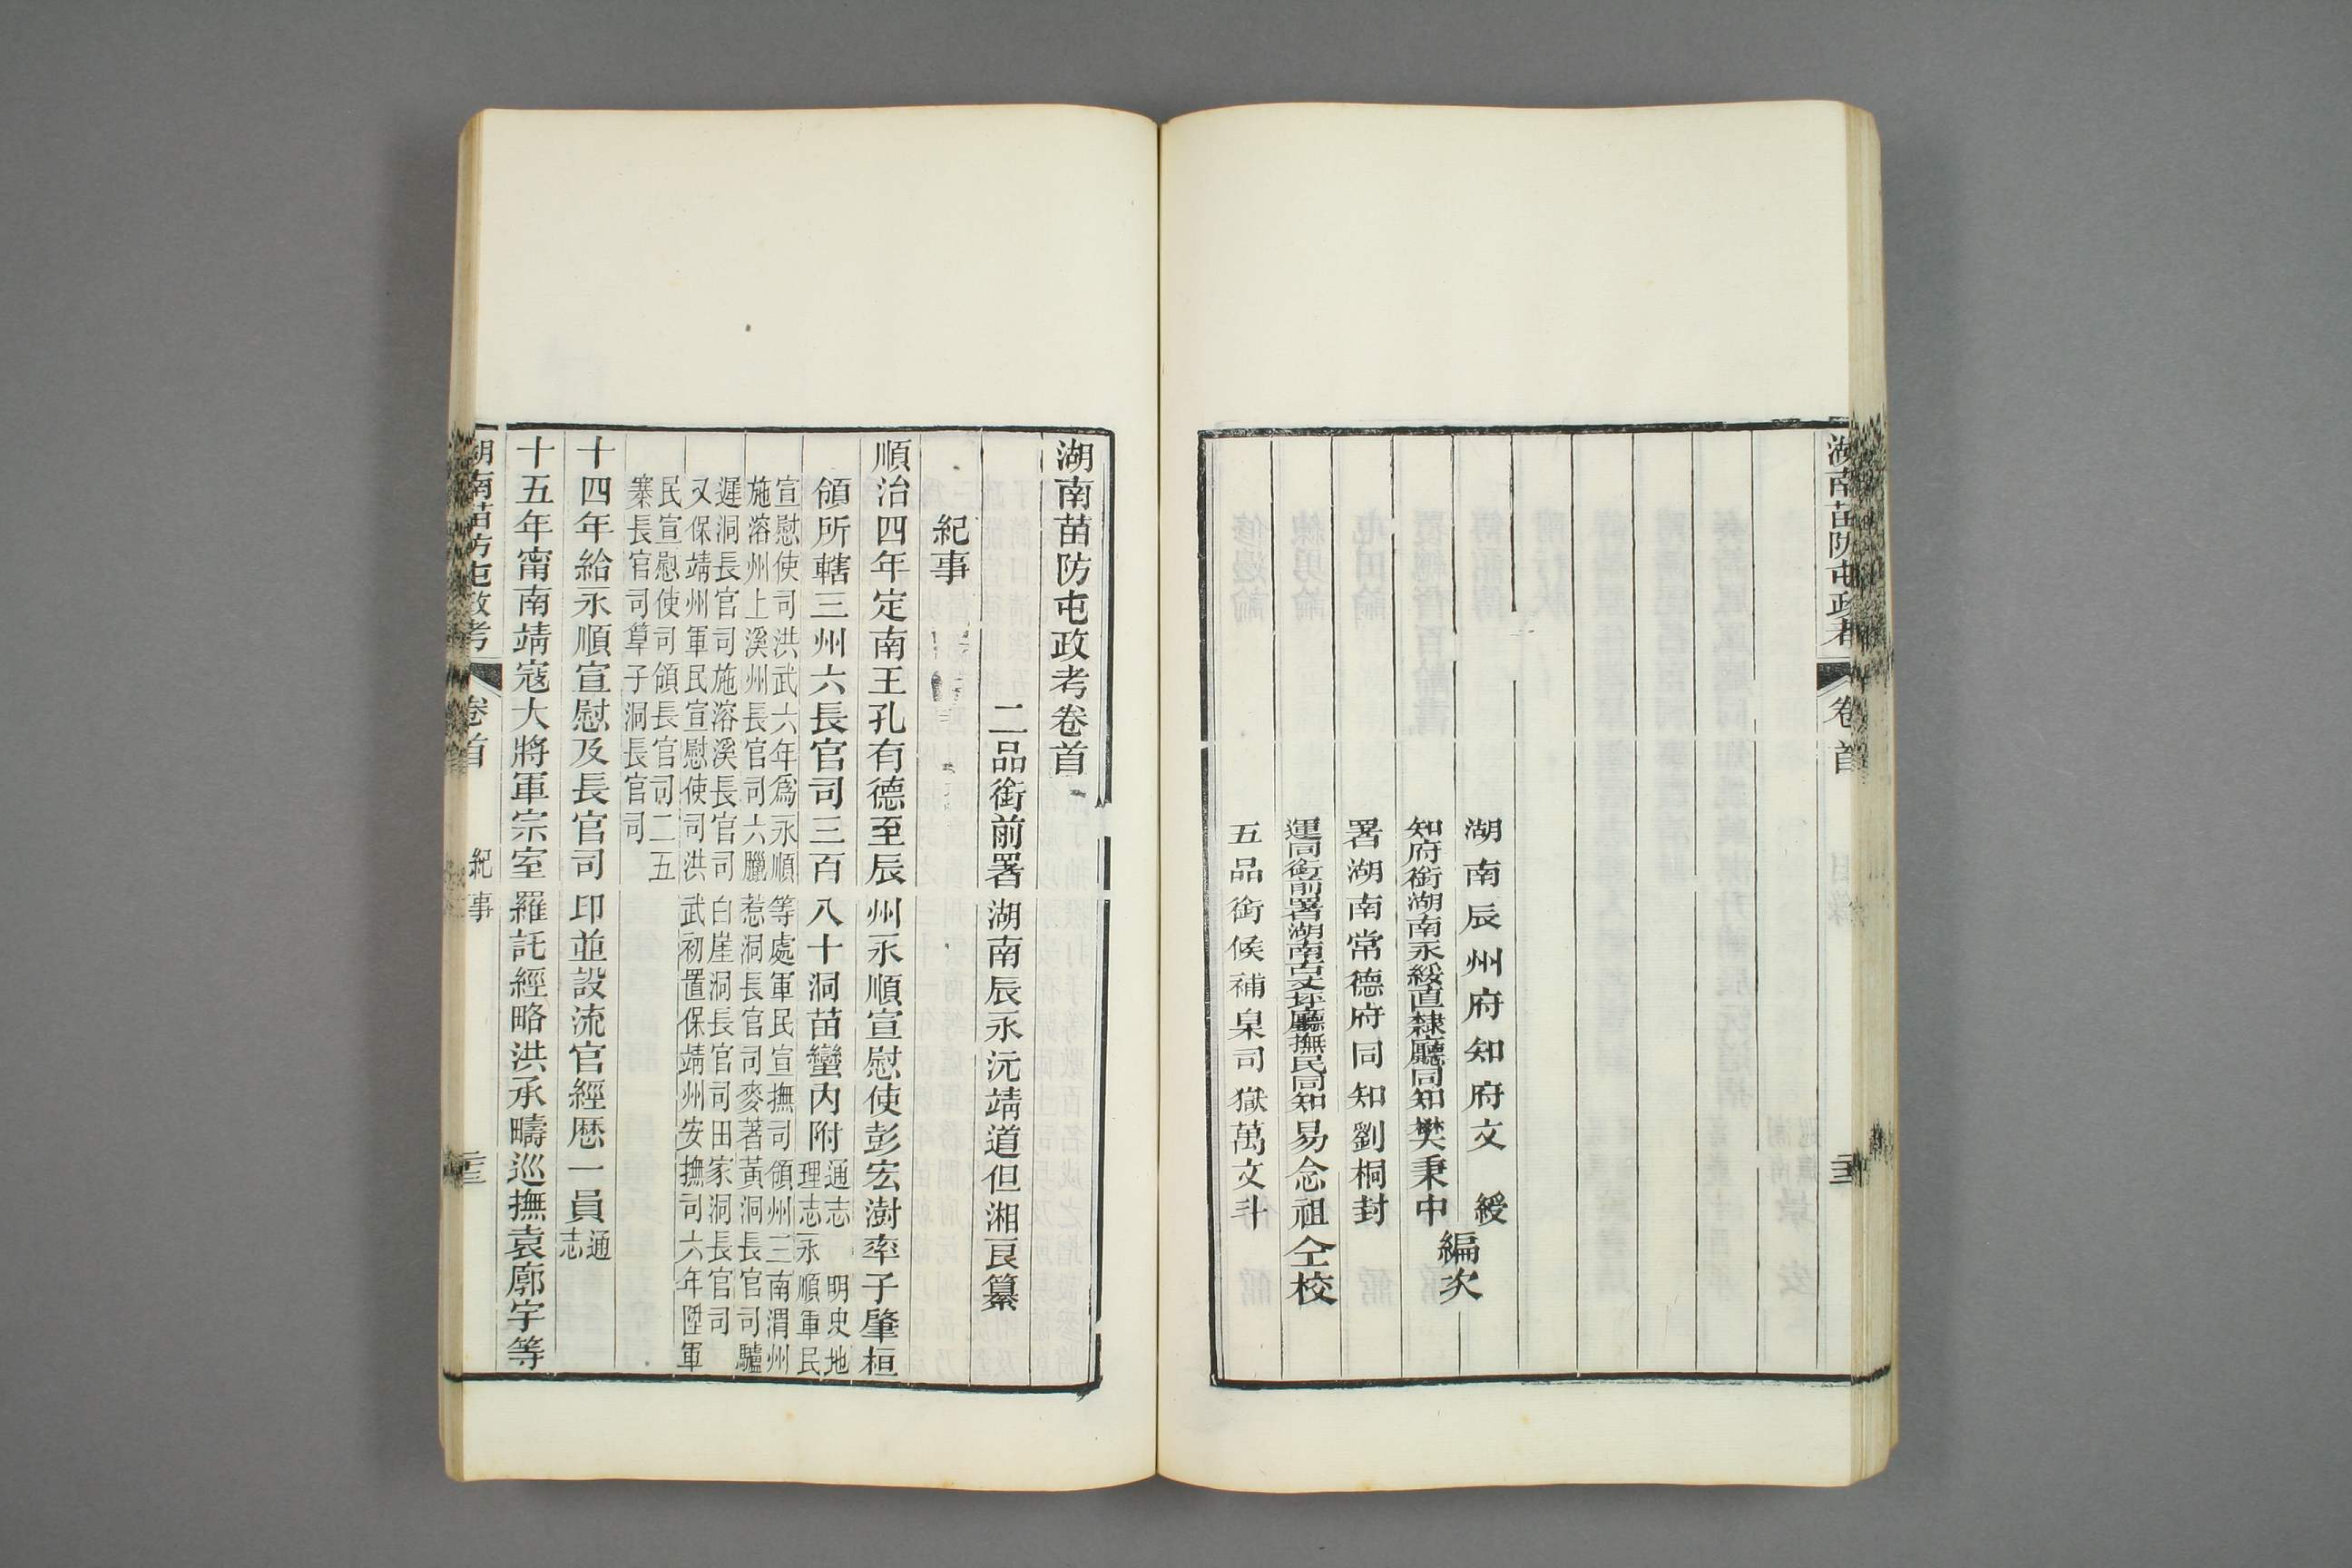 湖南苗防屯政考 卷首
湖南辰州府知府文 綬
知府銜湖南永綏直隸廳同知樊秉中
編次
署湖南常德府同知劉桐封
運同銜前署湖南古丈坪廳撫民同知易念祖
仝校
五品銜候補臬司獄萬文斗
湖南苗防屯政考卷首
二品銜前署湖南辰永沅靖道但湘良纂
紀事
順治四年定南王孔有德至辰州永順宣慰使彭宏澍率子肇桓
領所轄三州六長官司三百八十洞苗蠻內附
通志 明史地
理志永順軍民
宣慰使司洪武六年為永順等處軍民宣撫司領州三南渭州
施溶州上溪州長官司六臘惹洞長官司麥著黃洞長官司驢
遲洞長官司施溶溪長官司白崖洞長官司田家洞長官司
又保靖州軍民宣慰使司洪武初置保靖州安撫司六年陞軍
民宣慰使司領長官司二五
寨長官司筸子洞長官司
十四年給永順宣慰及長官司印並設流官經歷一員
通
志
十五年甯南靖寇大將軍宗室羅託經略洪承疇巡撫袁廓宇等
湖南苗防屯政考 卷首 紀事